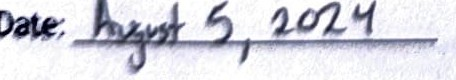 Date: August 5, 2024